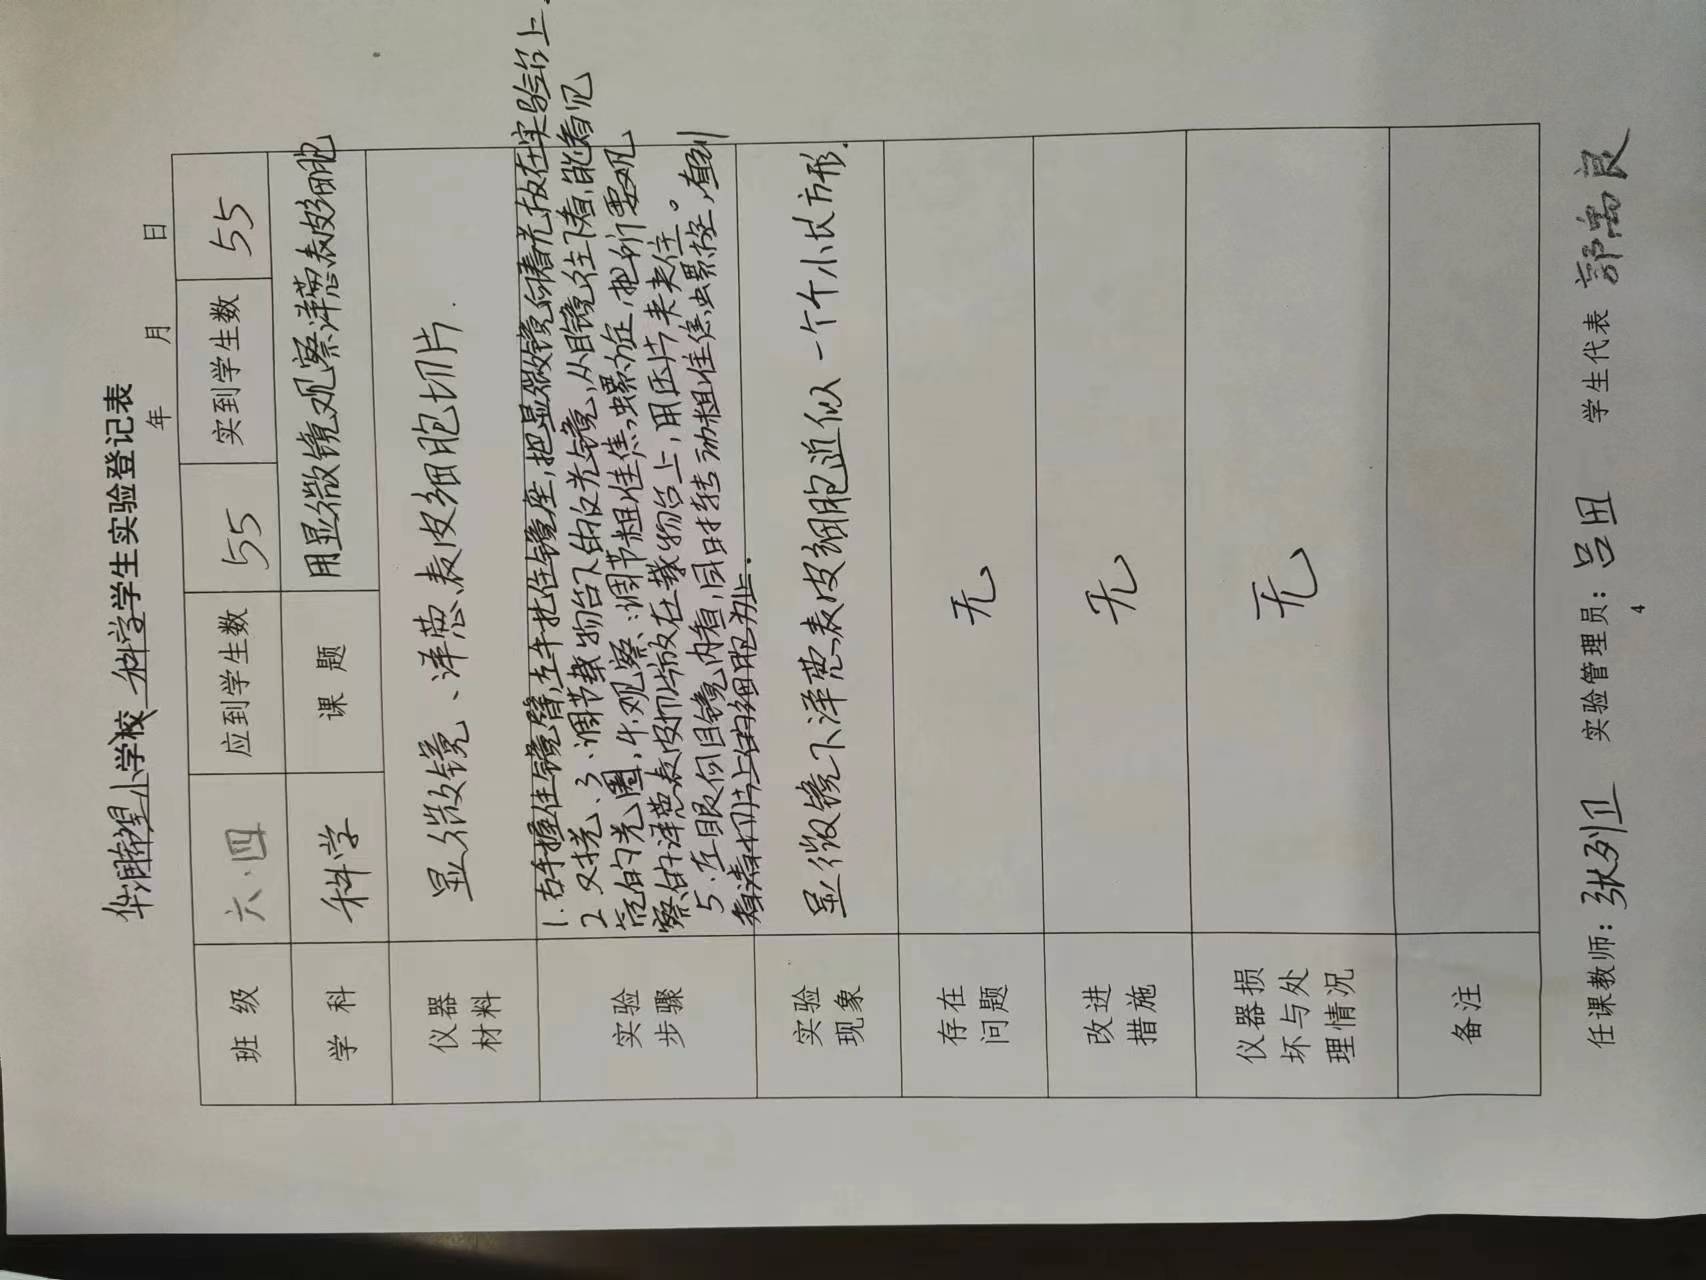 华润希望小学校 科学 学生实验登记表
年 月 日
班级 六.四 应到学生数 55 实到学生数 55
学科 科学 课题 用显微镜观察洋葱表皮细胞
仪器材料 显微镜、洋葱表皮细胞切片.
实验步骤
1.右手握住镜臂,左手托住镜座,把显微镜向着光放在实验台上.
2 对光、3、调节载物台下的反光镜,从目镜往下看,能看见
亮的光圈,4.观察:调节粗准焦螺旋,把所要观
察的洋葱表皮切片放在载物台上,用压片夹夹住。
5.左眼向目镜内看,同时转动粗准焦螺旋,直到
看清切片上的细胞为止.
实验现象 显微镜下洋葱表皮细胞近似一个个小长方形.
存在问题 无
改进措施 无
仪器损坏与处理情况 无
备注
任课教师: 张列卫 实验管理员: 吕田 学生代表
4